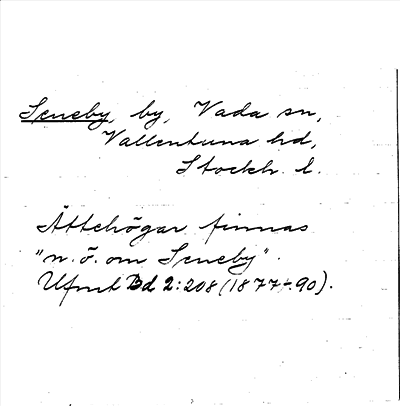 Seneby, by, Vada sn,
Vallentuna hd,
Stockh. l.
Ättehögar finnas
"n. ö. om Seneby".
Ufmt Bd 2:208 (1877-90).